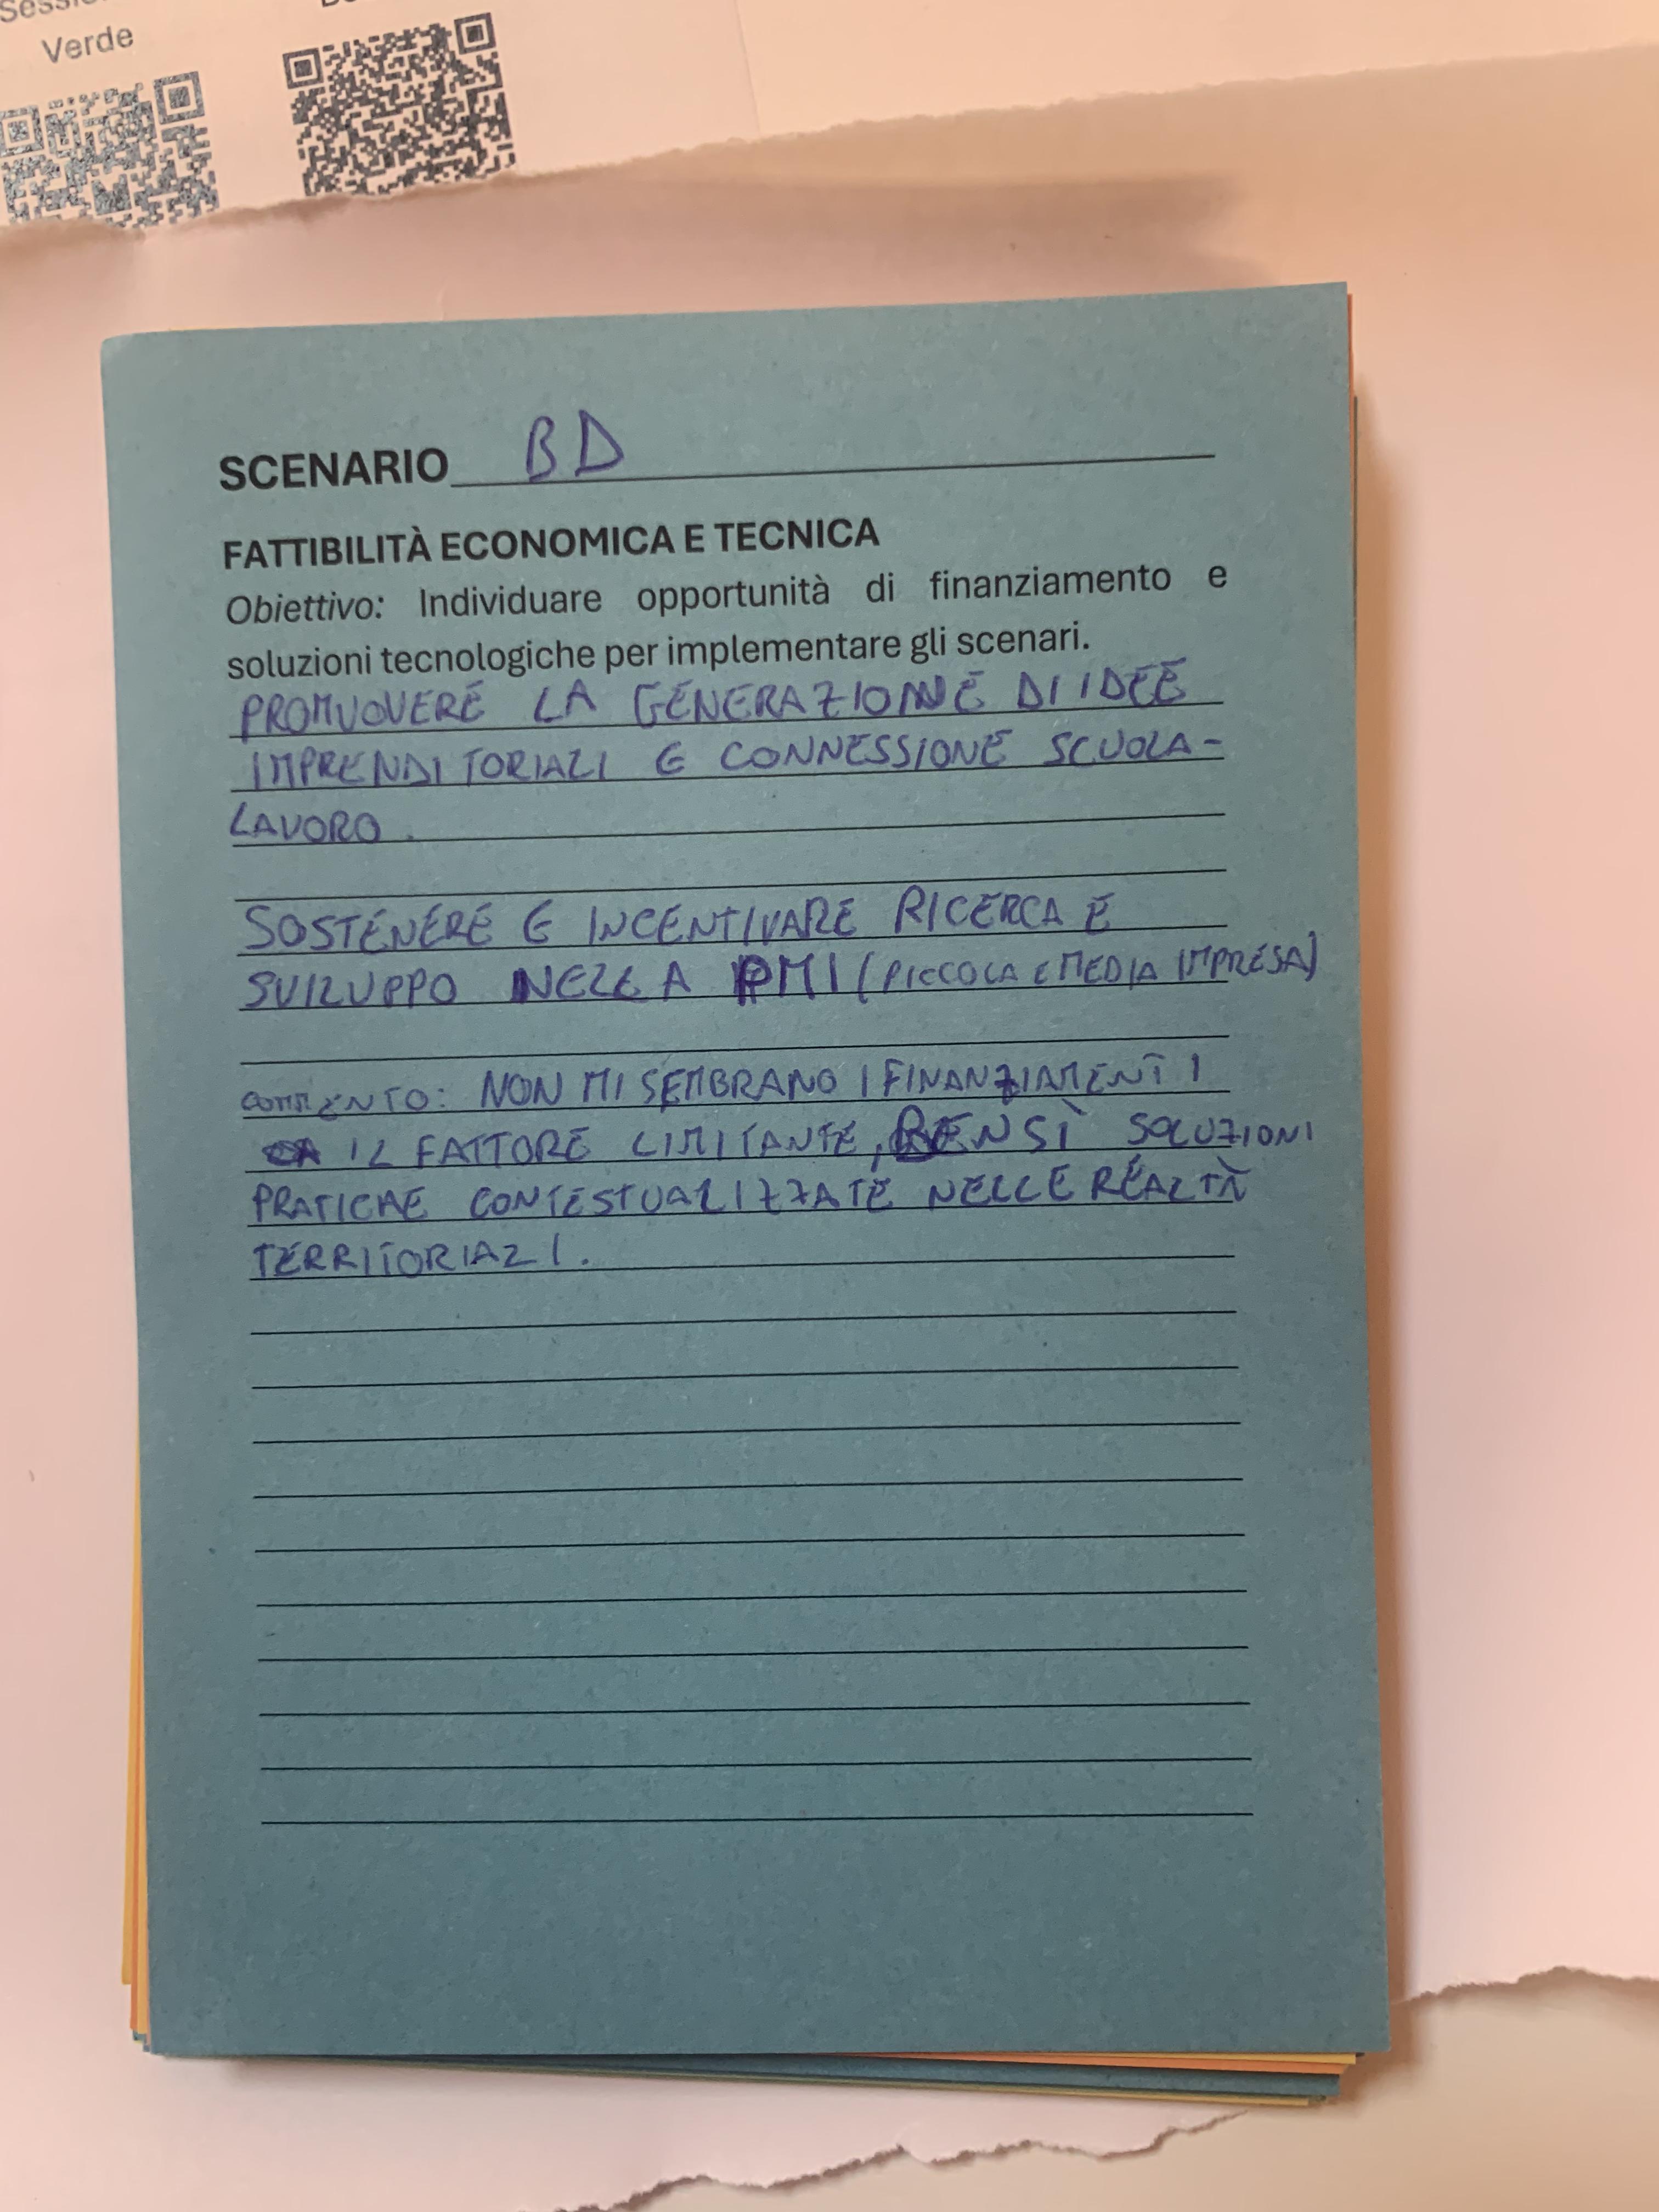 Verde
SCENARIO BD
FATTIBILITÀ ECONOMICA E TECNICA
Obiettivo: Individuare opportunità di finanziamento e
soluzioni tecnologiche per implementare gli scenari.
PROMUOVERE LA GENERAZIONE DI IDEE
IMPRENDITORIALI E CONNESSIONE SCUOLA-
LAVORO.
SOSTENERE E INCENTIVARE RICERCA E
SVILUPPO NELLA PMI (PICCOLA E MEDIA IMPRESA)
COMMENTO: NON MI SEMBRANO I FINANZIAMENTI
IL FATTORE LIMITANTE, BENSÌ SOLUZIONI
PRATICHE CONTESTUALIZZATE NELLE REALTÀ
TERRITORIALI.